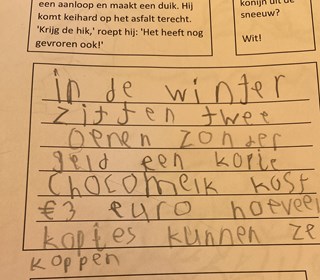 een aanloop en maakt een duik. Hij
komt keihard op het asfalt terecht.
'Krijg de hik,' roept hij: 'Het heeft nog
gevroren ook!'
konijn uit de
sneeuw?
Wit!
in de winter
zitten twee
oenen zonder
geld een kopje
chocomelk kost
€3 euro hoeveel
kopjes kunnen ze
koppen